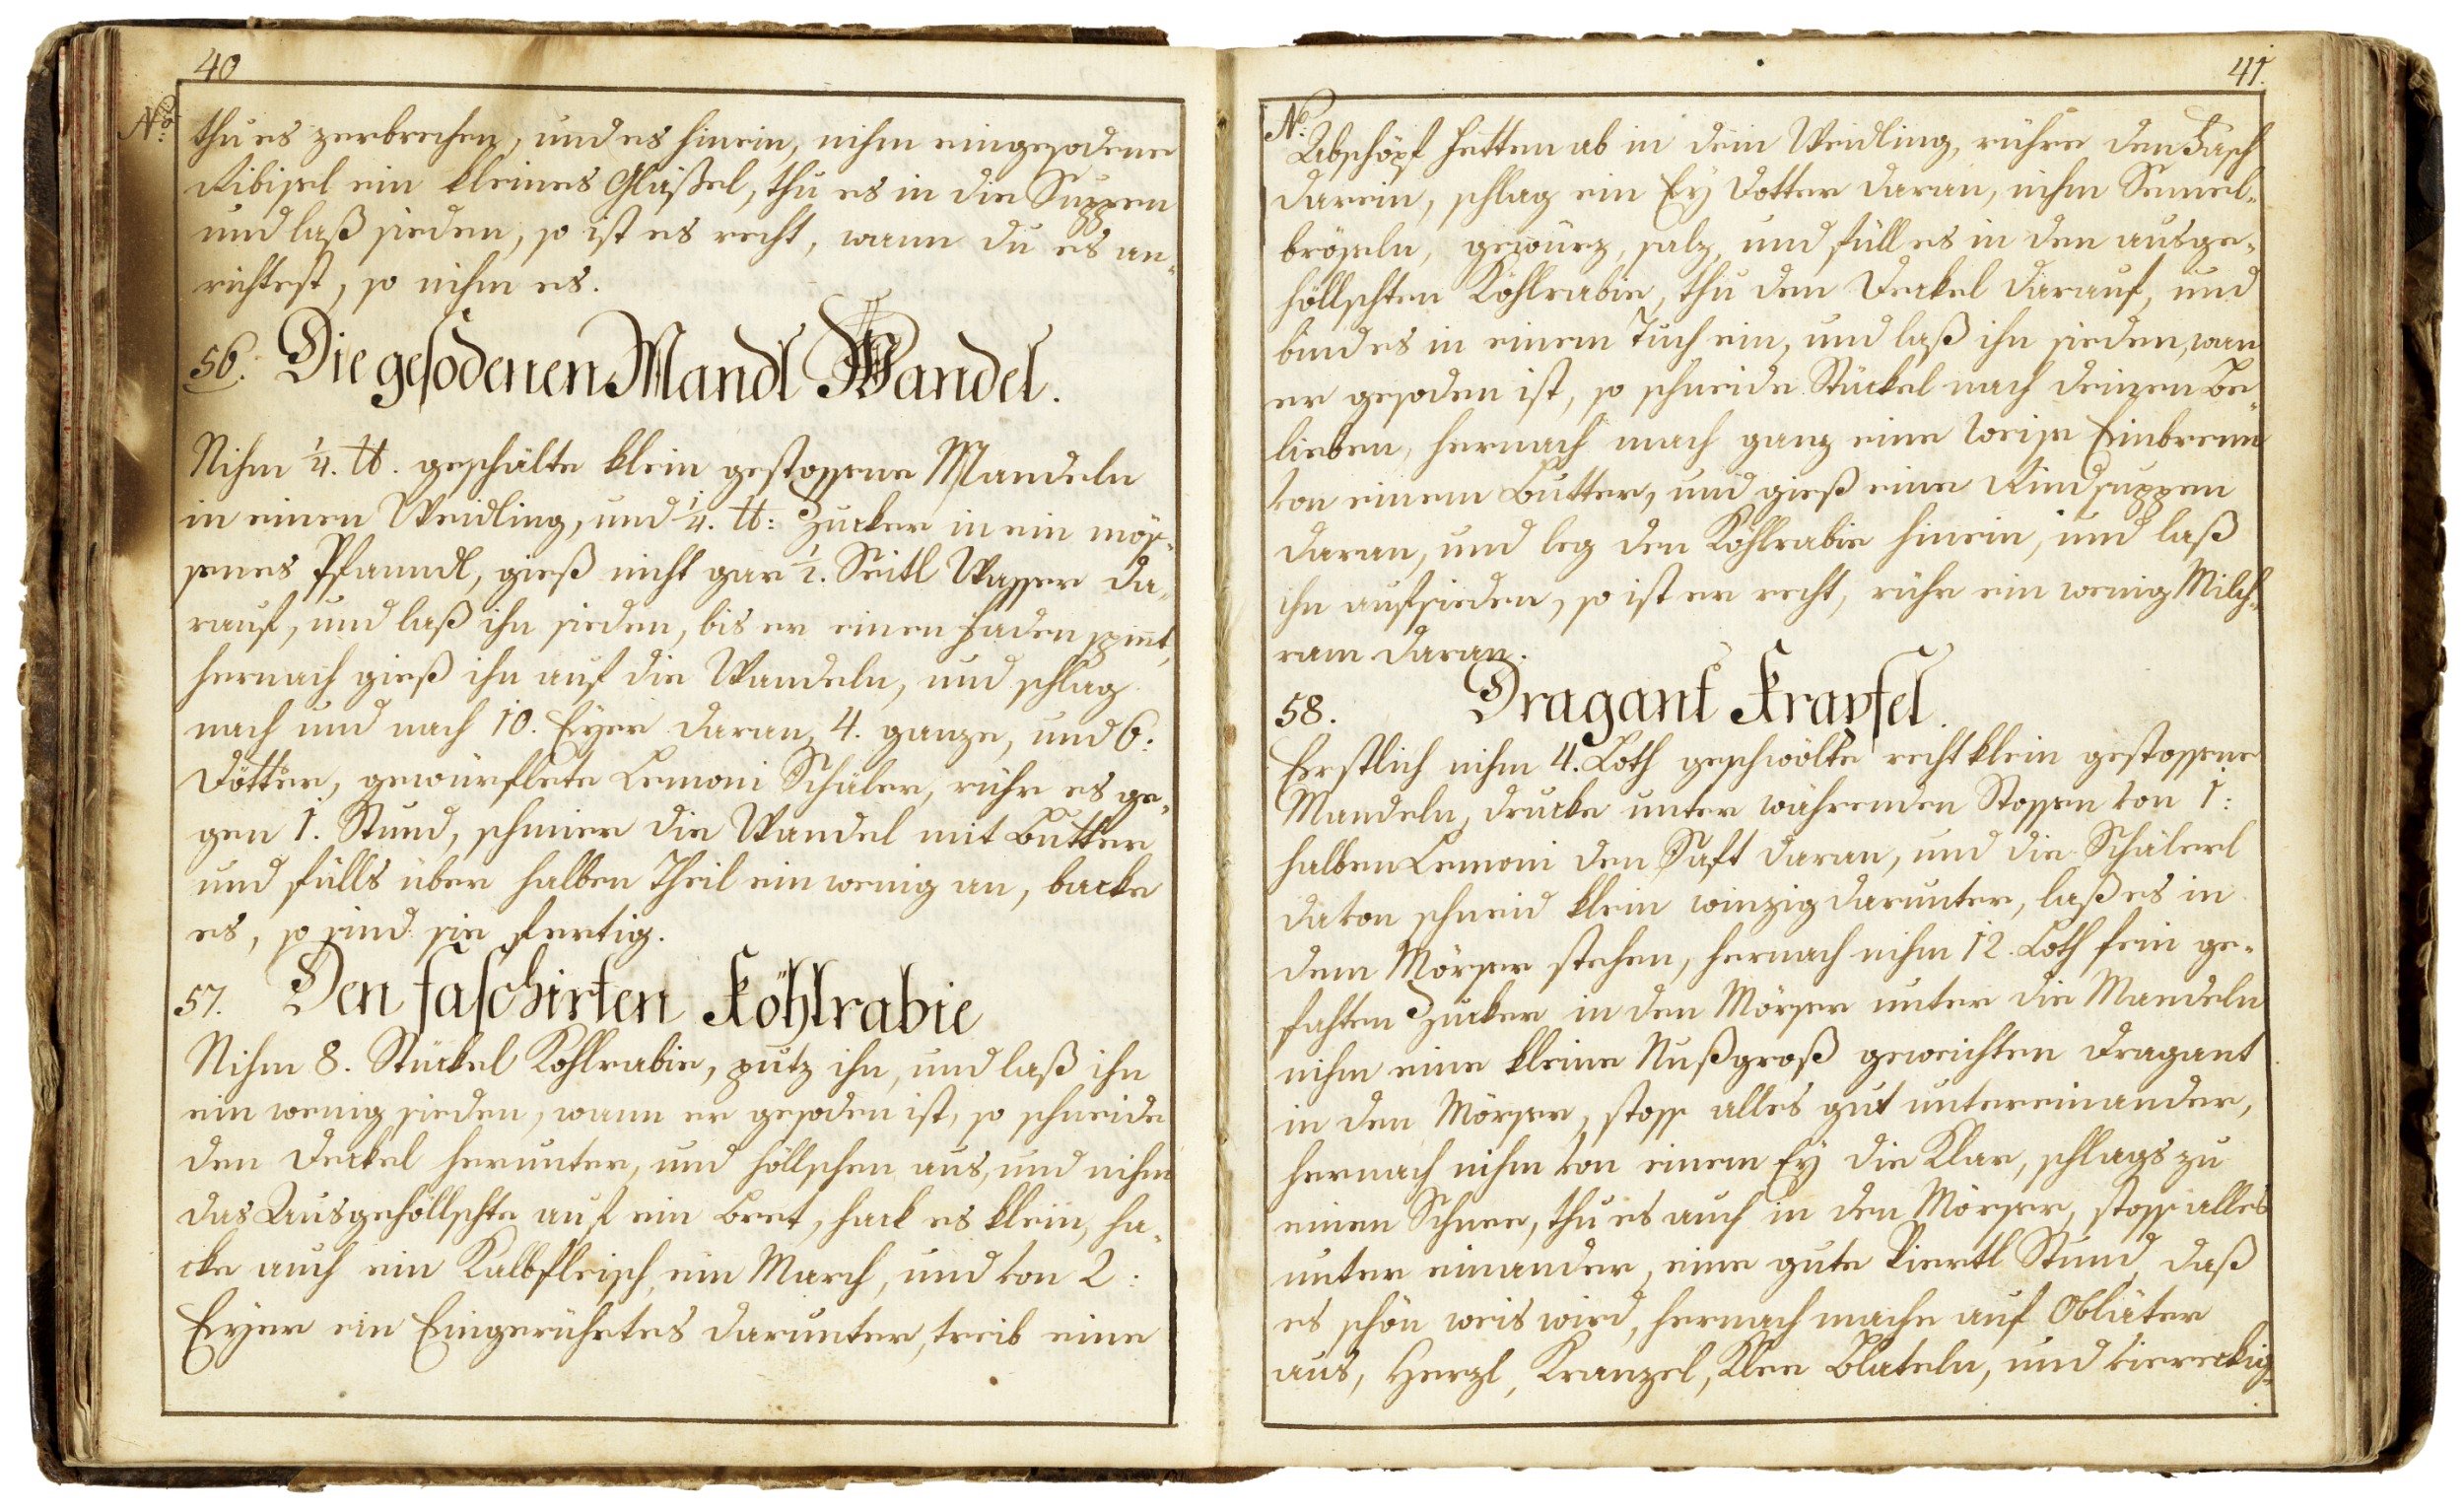 40
No: thu es zerbrechen, und es hinein, nihm eingesodene
Ribisel ein kleines Gläßel, thu es in die Suppen
und laß sieden, so ist es recht, wann du es an-
richtest, so nihm es.
56. Die gesodenen Mandl Wandel.
Nihm 1/4. ℔. geschälte klein gestossene Mandeln
in einen Weidling, und 1/4. ℔: Zucker in ein mös-
senes Pfanndl, gieß nicht gar 1/2. Seitl Wasser da-
rauf, und laß ihn sieden, bis er einen Faden spint,
hernach gieß ihn auf die Wandeln, und schlag
nach und nach 10. Eyer daran, 4. ganze, und 6:
Dötter, gewürflete Lemoni Schäler, rühr es ge-
gen 1. Stund, schmier die Wandel mit Butter
und fülls über halben Theil ein wenig an, backe
es, so sind sie fertig.
57. Den faschirten Köhlrabie
Nihm 8. Stückel Kohlrabie, putz ihn, und laß ihn
ein wenig sieden, wann er gesoden ist, so schneide
den Deckel herunter, und höllschen aus, und nihm
das Ausgehöllschte auf ein Bret, hack es klein, ha-
cke auch ein Kalbfleisch, ein March, und von 2:
Eyer ein Eingerührtes darunter, treib eine
41.
No: Abschöpf Fetten ab in dein Weidling, rühre den Fasch
darein, schlag ein Ey Dotter daran, nihm Semel-
bröseln, gewürz, salz, und füll es in den ausge-
höllschten Köhlrabie, thu den Deckel darauf, und
bind es in einem Tuch ein, und laß ihn sieden, wan
er gesoden ist, so schneide Stückel nach deinen Be-
lieben, hernach mach ganz eine weise Einbrenn
von einem Butter, und gieß eine Rindsuppen
daran, und leg den Köhlrabie hinein, und laß
ihn aufsieden, so ist er recht, rühr ein wenig Milch-
ram daran.
58. Dragant Krapfel.
Erstlich nihm 4. Loth geschwölte recht klein gestossene
Mandeln, drucke unter währenden Stossen von 1:
halben Lemoni den Saft daran, und die Schälerl
davon schneid klein winzig darunter, laß es in
dem Mörser stehen, hernach nihm 12. Loth fein ge-
fahten Zucker in den Mörser unter die Mandeln
nihm eine kleine Nußgroß geweichten Dragant
in den Mörser, stoss alles gut untereinander,
hernach nihm von einem Ey die Klar, schlags zu
einen Schnee, thu es auch in den Mörser, stosse alles
unter einander, eine gute Viertl Stund, daß
es schön weis wird, hernach mache auf Oblater
aus, Herzl, Kranzel, Klee Blateln, und viereckig-